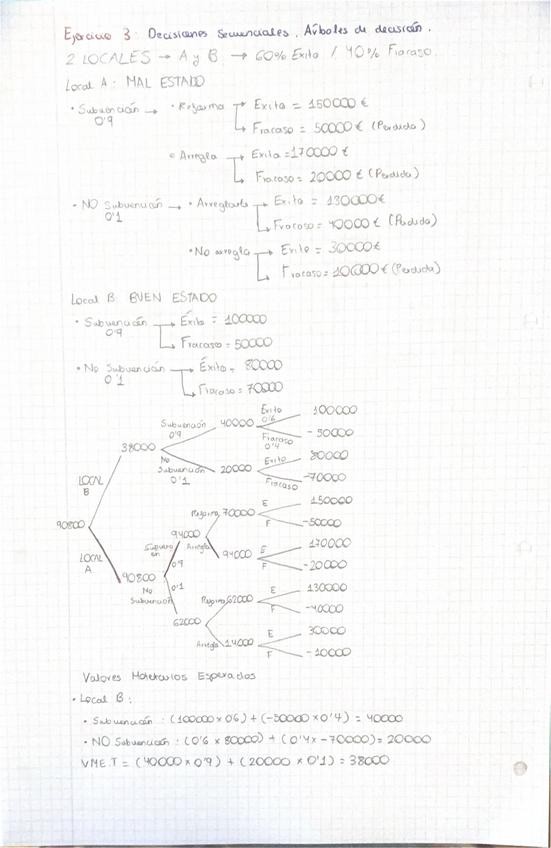 Ejercicio 3: Decisiones Secuenciales. Árboles de decisión.
2 LOCALES → A y B → 60% Exito / 40% Fracaso.
Local A: MAL ESTADO
• Subvención → • Reforma → Exito = 150000 €
0'9 → Fracaso = 50000 € (Perdida)
• Arregla → Exito = 170000 €
→ Fracaso = 20000 € (Perdida)
• NO Subvención → • Arreglarlo → Exito = 130000 €
0'1 → Fracaso = 40000 € (Perdida)
• No arregla → Exito = 30000 €
→ Fracaso = 10000 € (Perdida)
Local B BUEN ESTADO
• Subvención → Éxito = 100000
0'9 → Fracaso = 50000
• No Subvención → Éxito = 80000
0'1 → Fracaso = 70000
Subvención 0'9 40000 Éxito 0'6 100000
38000 Fracaso 0'4 - 50000
No Subvención 0'1 20000 Exito 80000
LOCAL B Fracaso -70000
90800 Reforma 70000 E 150000
94000 F -50000
LOCAL A 0'9 Arregla 94000 E 170000
90800 F -20000
No Subvención 0'1 62000 E 130000
62000 F -40000
Arregla 14000 E 30000
F -10000
Valores Monetarios Esperados
• Local B:
• Subvención: (100000 x 0'6) + (-50000 x 0'4) = 40000
• NO Subvención: (0'6 x 80000) + (0'4 x -70000) = 20000
VME.T = (40000 x 0'9) + (20000 x 0'1) = 38000